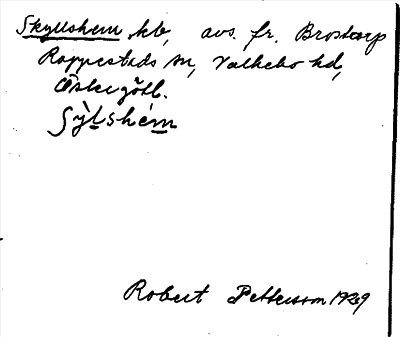 Skyllshem hb, avs. fr. Brostorp
Rappestads sn, Valkebo hd,
Östergötl.
Sỳlshém
Robert Pettersson 1929